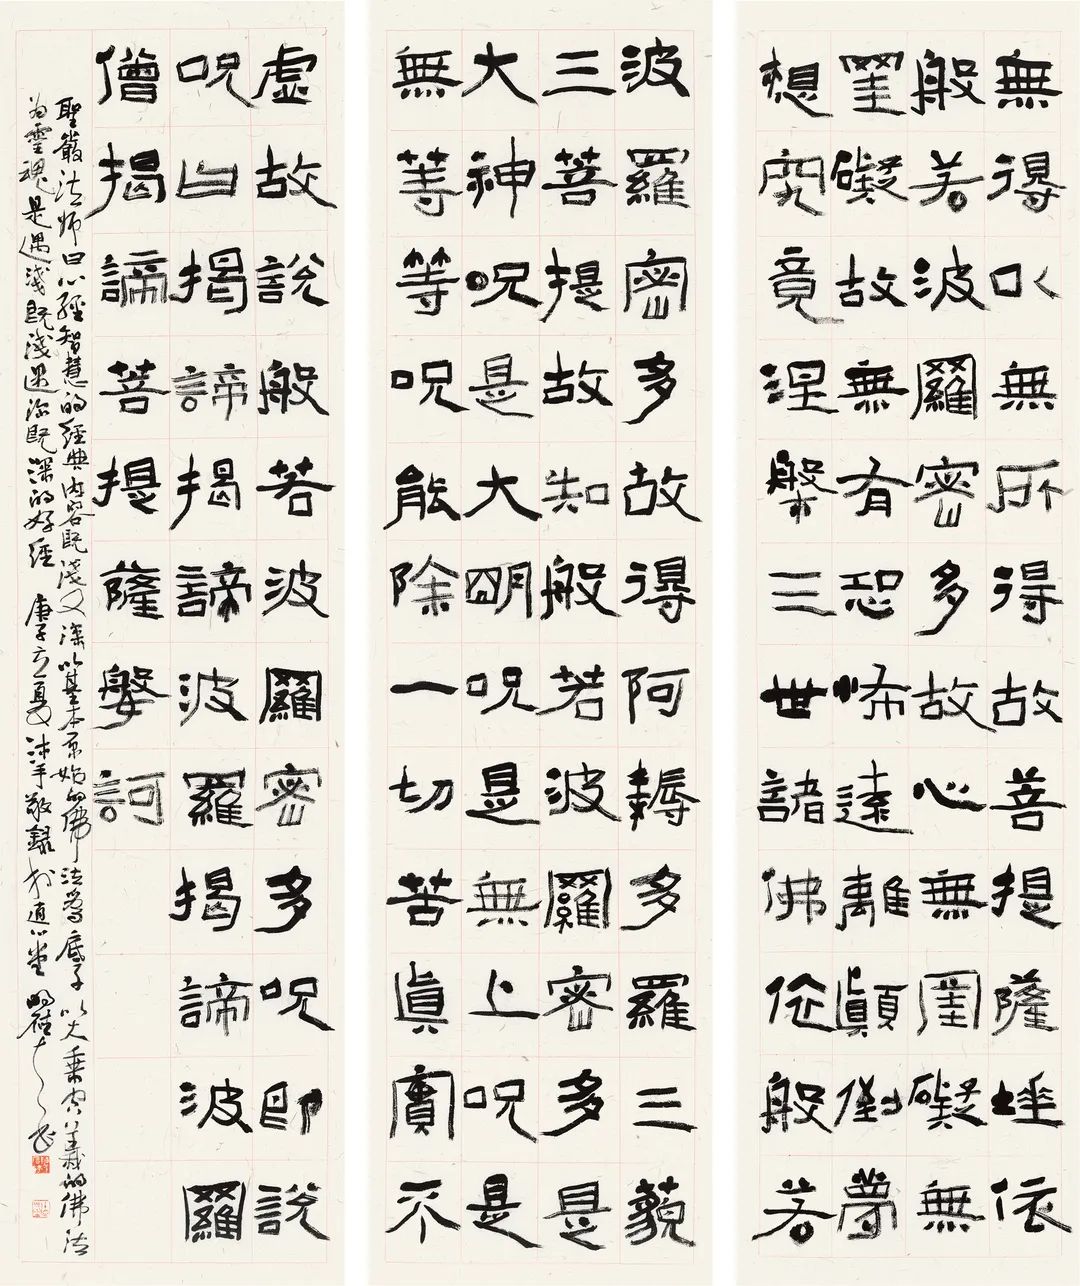 無得以無所得故菩提薩埵依
般若波羅密多故心無罣礙無
罣礙故無有恐怖遠離顛倒夢
想究竟涅槃三世諸佛依般若
波羅密多故得阿耨多羅三藐
三菩提故知般若波羅密多是
大神呪是大明呪是無上呪是
無等等呪能除一切苦真實不
虛故說般若波羅密多呪即說
呪曰揭諦揭諦波羅揭諦波羅
僧揭諦菩提薩婆訶
聖嚴法師曰心經智慧的經典內容既淺又深以基本原始的佛法為底子以大乘實義的佛法
為靈魂是遇淺既淺遇深既深的好經 庚子立夏沐手敬錄於直心堂